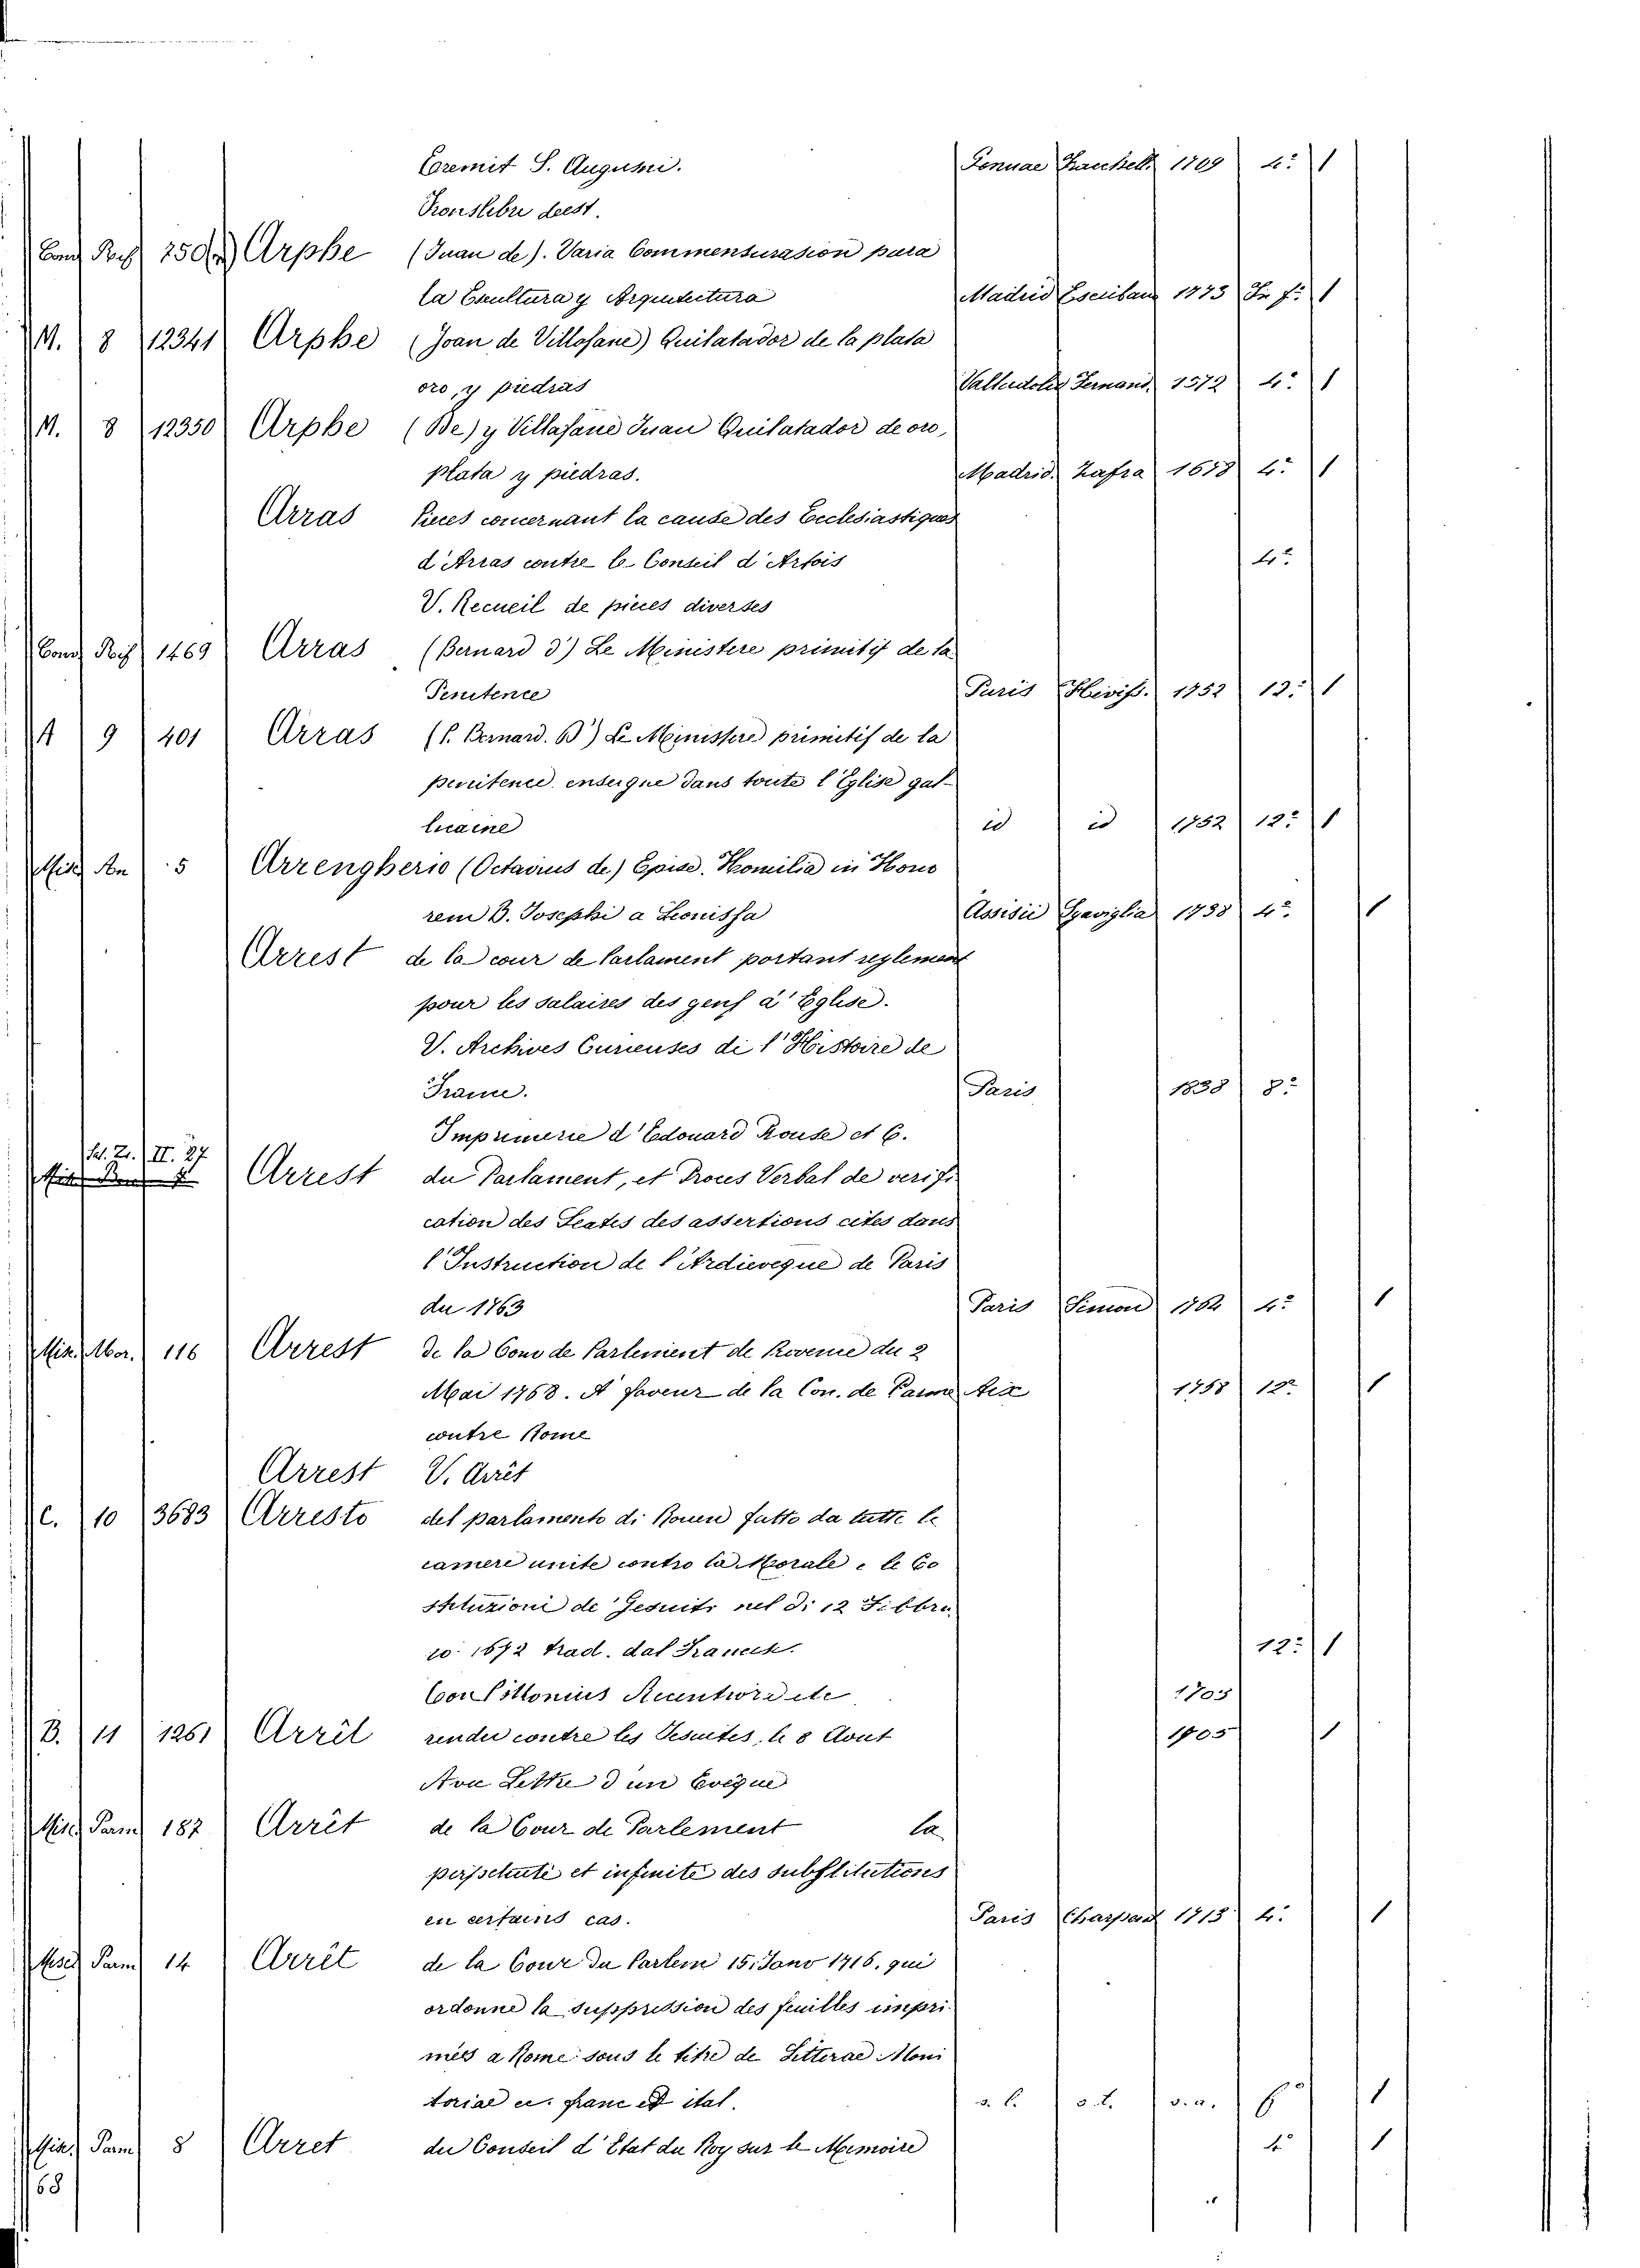 Eremit S. Augusti. Genuae 1709 4º 1
Frontslebri deest.
Arphe (Juan de). Varia Commensurasion para
la Escultura y Arquitectura Madrid Escriban 1773 In fº 1
M. 8 12341 Arphe (Joan de Villofane) Quilatador de la plata
oro, y piedras Valladolid Fernand. 1572 4º 1
M. 8 12350 Arphe (De) y Villafane Juan Quilatador de oro,
plata y piedras. Madrid. Zafra 1678 4º 1
Arras Pieces concernant la cause des Ecclesiastiques
d'Arras contre le Conseil d'Artois 4º
V. Recueil de pieces diverses
1469 Arras (Bernard d') Le Ministere primitif de la
Penitence Paris 1752 12º 1
A 9 401 Arras (P. Bernard. D') Le Ministere primitif de la
penitence enseigne dans toute l'Eglise gal-
licaine id id 1752 12º 1
5 Arrengherio (Octavius de) Episc. Homilia in Hono
rem B. Josephi a Leonissa Assisii Sgaviglia 1738 4º 1
Arrest de la cour de Parlament portant reglement
pour les salaires des gens d'Eglise.
V. Archives Curieuses di l'Histoire de
France. Paris 1838 8º
Imprimerie d'Edouard Rouse et C.
II. 27
Arrest du Parlament, et Proces Verbal de verifi
cation des Textes des assertions cites dans
l'Instruction de l'Ardieveque de Paris
du 1763 Paris Simon 1764 4º 1
Mis. Mor. 116 Arrest de la Cour de Parlement de Provence du 2
Mai 1768. A faveur de la Con. de Parme Aix 1758 12º 1
contre Rome
Arrest V. Arrêt
C. 10 3683 Arresto del parlamento di Rouen fatto da tutte le
camere unite contro la Morale e le Co
stituzioni de Gesuiti nel di 12 Febbra
io 1672 trad. dal Francese. 12º 1
1705
B. 11 1261 Arrêt rendu contre les Jesuites, le 8 Aout 1705 1
Lettre d'un Eveque
Misc. Parm 187 Arrêt de la Cour de Parlement la
perpetuité et infinité des substitutions
en certains cas. Paris Charpent 1713 4º 1
Misc. Parm 14 Arrêt de la Cour du Parlem 15. Janv 1716. qui
ordonne la suppression des feuilles impri
mées a Rome sous le titre de Litterae Moni
toriae franc et ital. s. l. s. t. s. a. 6º 1
Misc. Parm 8 Arret du Conseil d'Etat du Roy sur le Memoire 4º 1
68